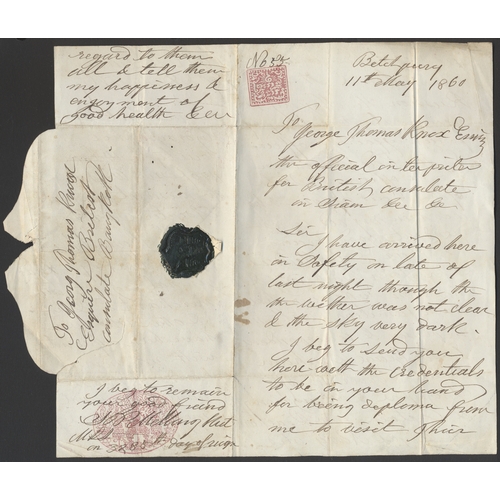 No 27
Betchpury
11th May 1860
To
George Thomas Knox Esquire
the official interpriter
for British consulate
in Siam &c &c
Sir
I have arrived here
in Safety on late of
last night through the
the wither was not clear
& the sky very dark.
I beg to send you
here with the Credentials
to be in your hand
for being diploma from
me to visit their
regard to them
all & tell them
my happiness &
enjoyment of
good health &c
To Georg Thomas
Esquire British
consulate Bangkok
I beg to remain
your good friend
day of reign